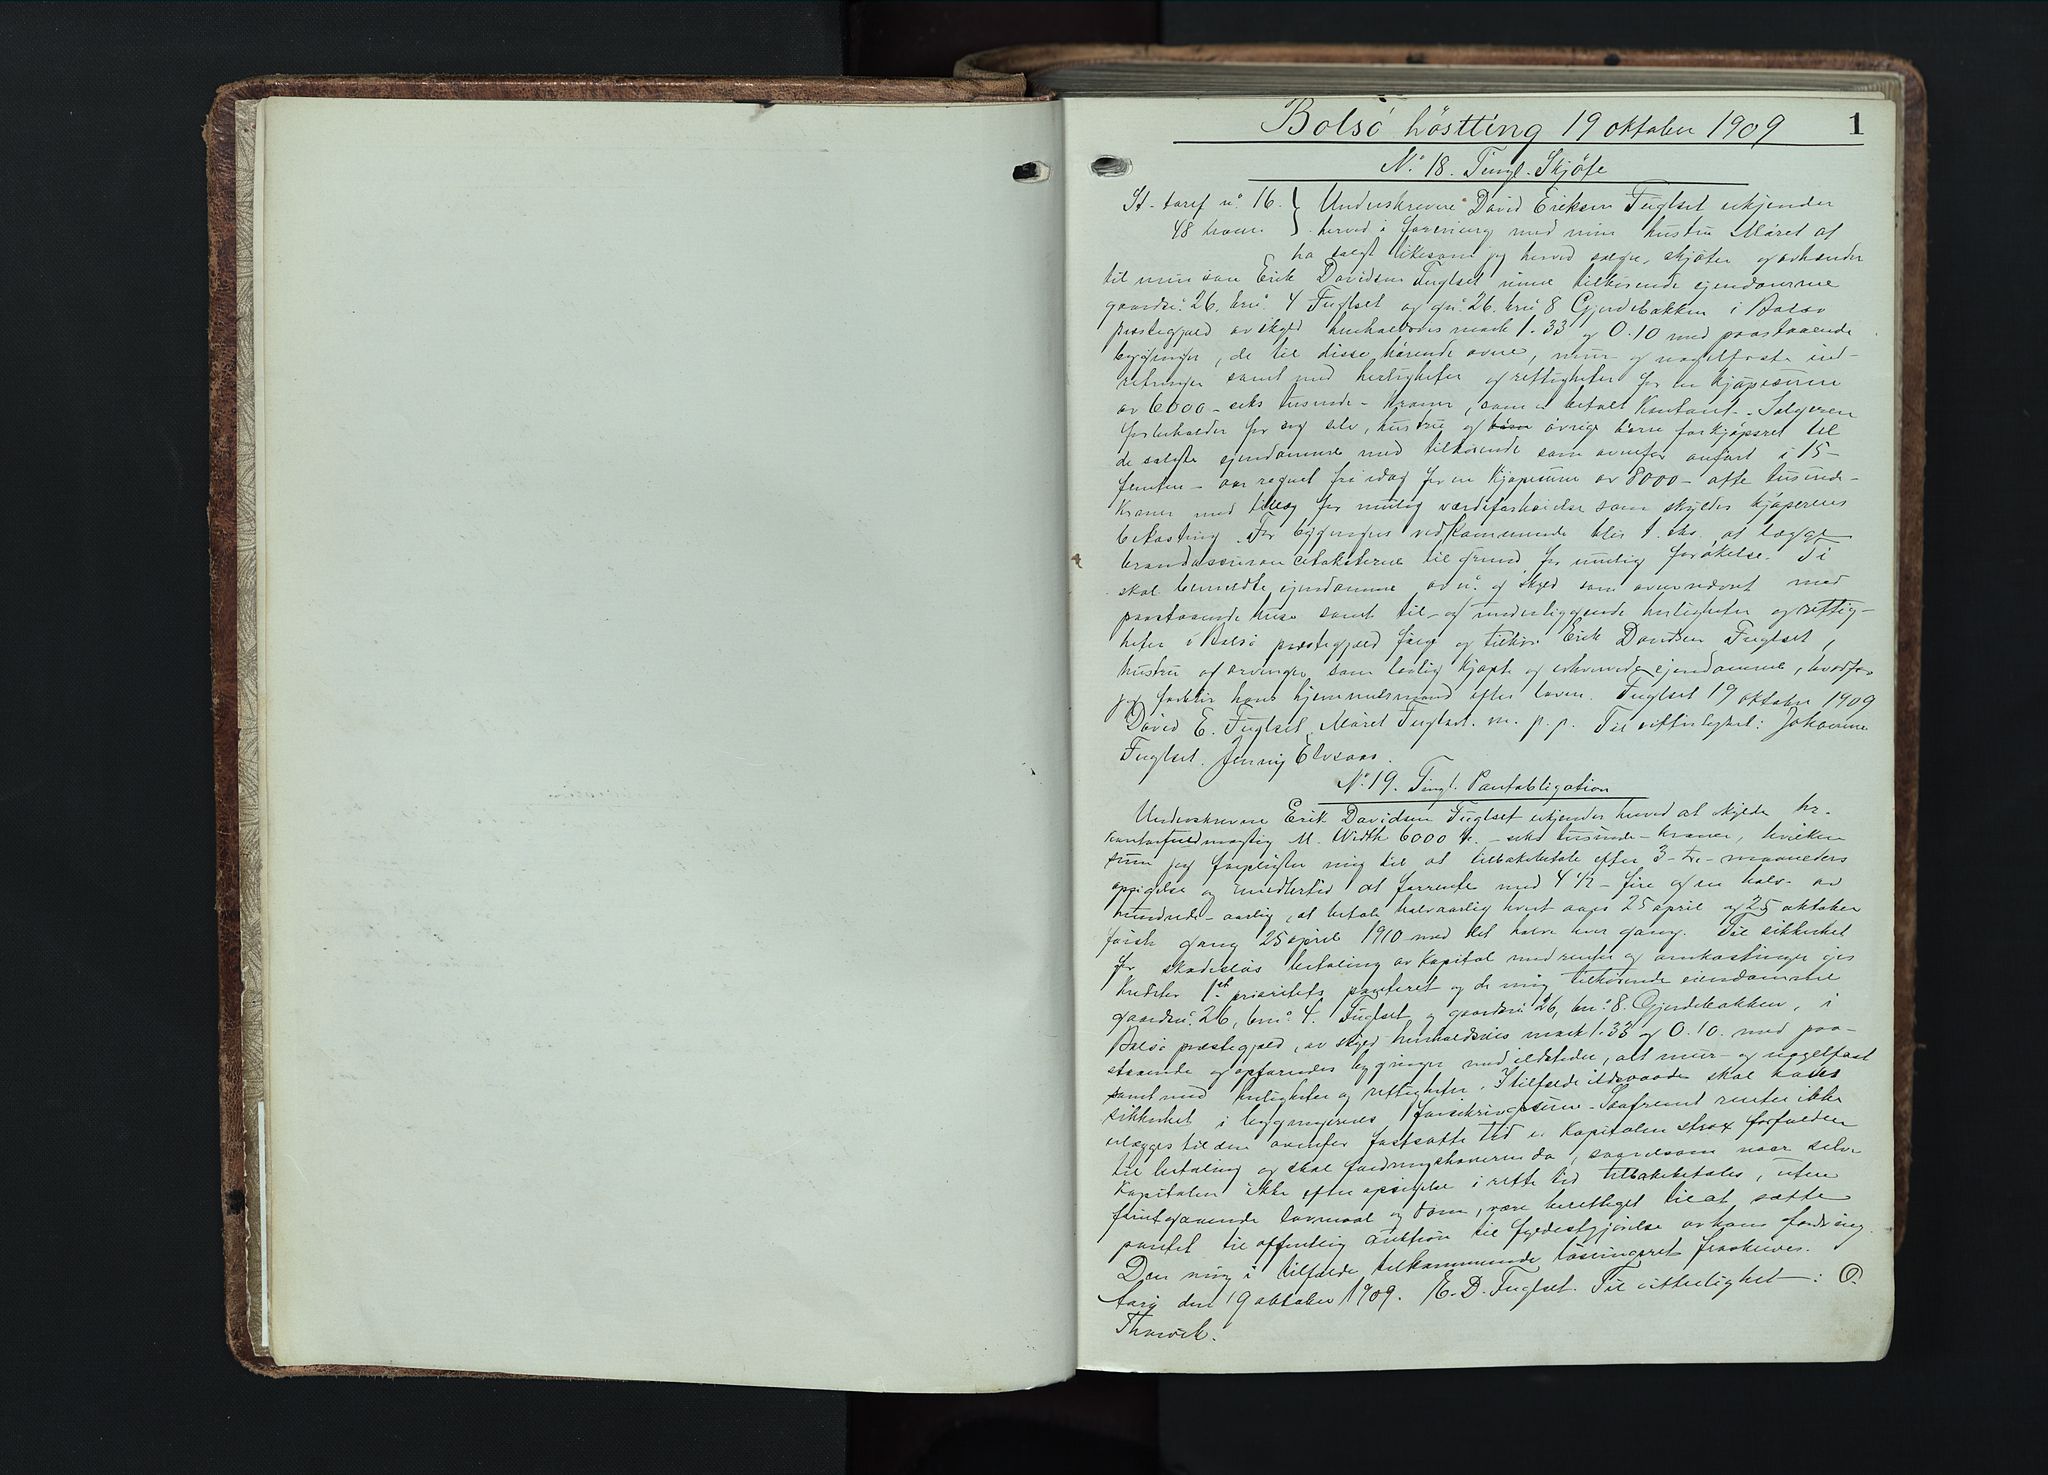 Bolsö höstting 19 oktober 1909
1
No 18. Tingl. Skjöte
St. taref no. 16. } Underskrevne David Eriksen Fuglset erkjender
48 kroner. } herved i forening med min hustru Maret at
ha solgt likesom jeg herved sælger, skjöter og avhænder
til min sön Erik Davidsen Fuglset mine tilhörende eiendomme
gaardsn. 26, brn. 4 Fuglset og gn. 26, brn. 8 Gjerdebakken i Bolsö
præstegjæld av skyld henholdsvis mark 1.33 og 0.10 med paastaaende
bygninger, de til disse hörende ovne, mur- og nagelfaste ind-
retninger samt med herligheter og rettigheter for en kjöpesum
av 6000 - seks tusinde - kroner, som er betalt kontant. - Sælgeren
forbeholder for sig selv, hustru og övrige börn forkjöpsret til
de solgte eiendomme med tilhörende som ovenfor anfört i 15 -
femten - aar regnet fra idag for en kjöpesum av 8000 - otte tusinde -
kroner med tillæg for mulig værdiforhöielse som skyldes kjöperens
bekostning. For bygningers vedkommende blir f. eks. at lægge
brandassurancetaksterne til grund for mulig forökelse. Ti
skal bemeldte eiendomme av no. og skyld som ovennævnt med
paastaaende huse samt til- og underliggende herligheter og rettig-
heter i Bolsö præstegjæld fölge og tilhöre Erik Davidsen Fuglset,
hustru og arvinger som lovlig kjöpt og erhvervede eiendomme, hvorfor
jeg forblir hans hjemmelsmand efter loven. Fuglset 19 oktober 1909
David E. Fuglset. Maret Fuglset. m. p. p. Til vitterlighet: Johanne
Fuglset. Jenny Elvsaas.
No 19. Tingl. Pantobligation
Underskrevne Erik Davidsen Fuglset erkjender herved at skylde hr.
kontorfuldmægtig M. Width 6000 kr. - seks tusinde - kroner, hvilken
sum jeg forpligter mig til at tilbakebetale efter 3 - tre - maaneders
opsigelse og imidlertid at forrente med 4 1/2 - fire og en halv - av
hundrede - aarlig, at betale halvaarlig hvert aars 25 april og 25 oktober
förste gang 25 april 1910 med det halve hver gang. Til sikkerhet
for skadeslös betaling av kapital med renter og omkostninger gis
kreditor 1ste prioritets panteret og de mig tilhörende eiendomme
gaardsn. 26, brno. 4. Fuglset og gaardsn. 26, brno. 8. Gjerdebakken, i
Bolsö præstegjæld, av skyld henholdsvis mark 1.33 og 0.10. med paa-
staaende og opförendes bygninger med ildsteder, alt mur- og nagelfast
samt med herligheter og rettigheter. I tilfælde ildsvaade skal haves
sikkerhet i bygningernes forsikringssum. Saafremt renter ikke
erlægges til den ovenfor fastsatte tid er kapitalen strax forfalden
til betaling og skal fordringshaveren da, saavelsom naar selve
kapitalen ikke efter opsigelse i rette tid tilbakebetales, uten
forutgaaende lovmaal og dom, være berettiget til at sætte
pantet til offentlig auktion til fyldestgjörelse av hans fordring.
Den mig i tilfælde tilkommende lösningsret fraskrives.
den 19 oktober 1909. E. D. Fuglset. Til vitterlighet: O.